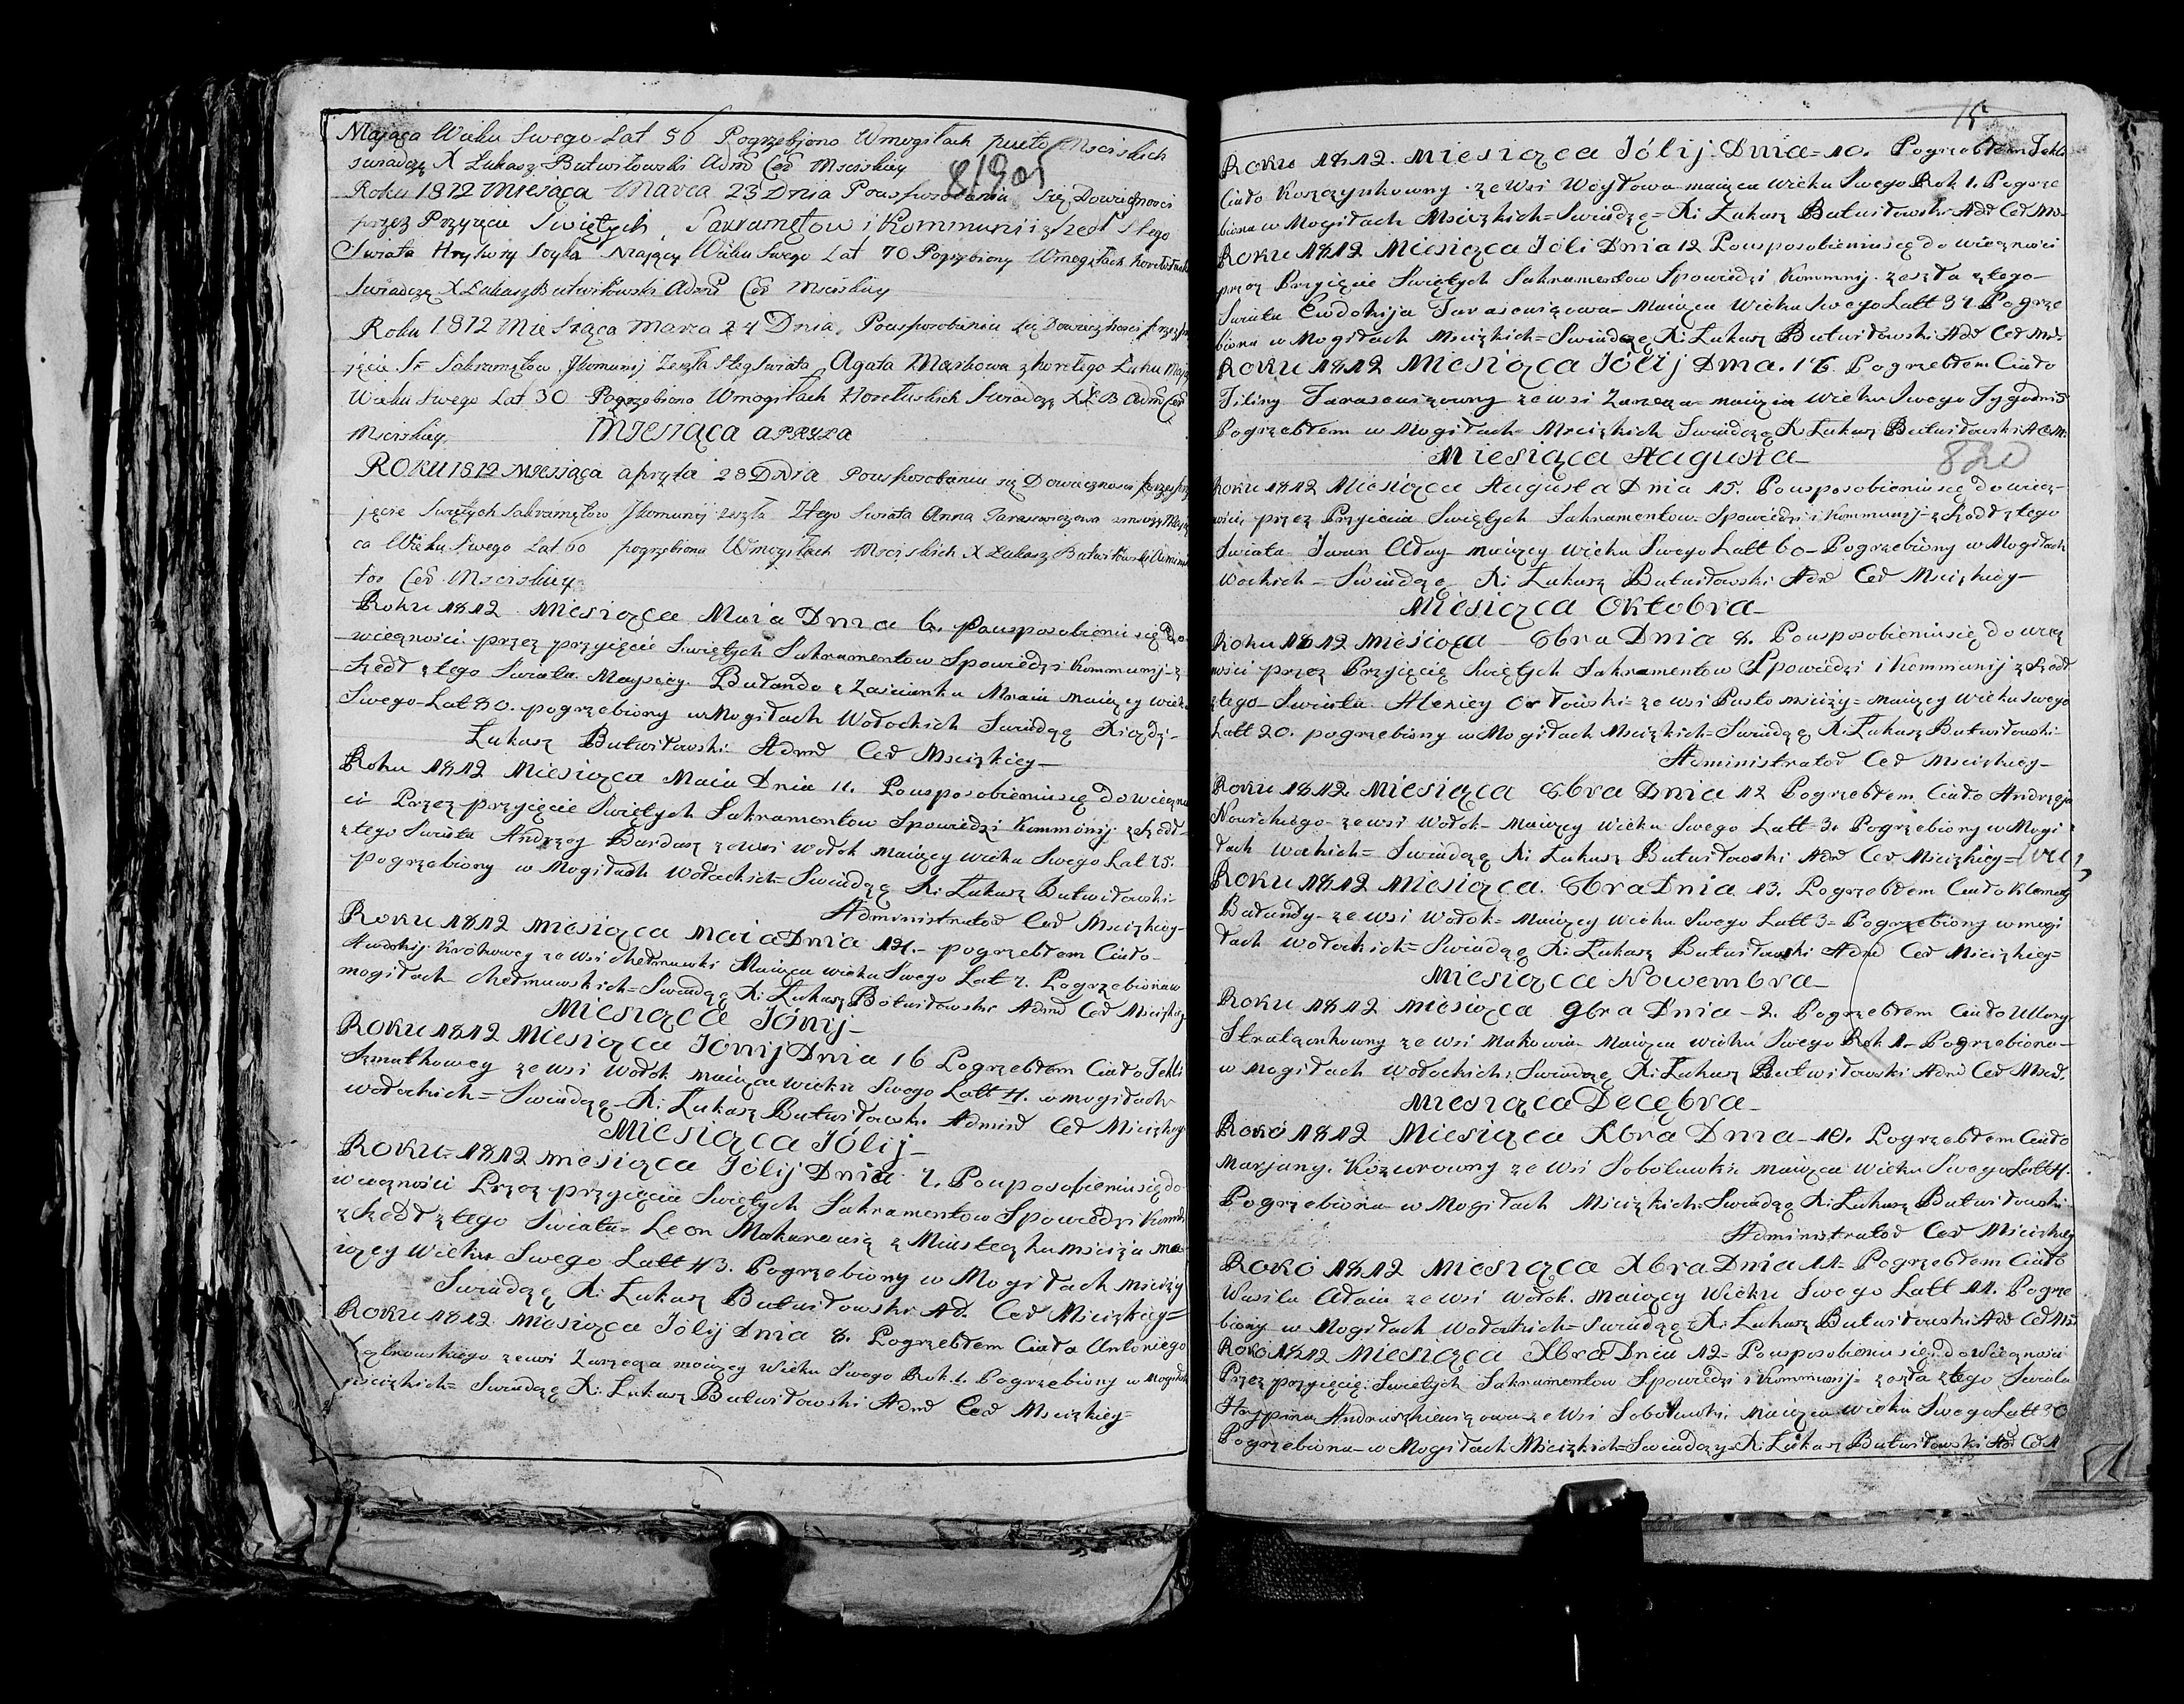 Maiąca Wieku Swego Lat 56 Pogrzebjona Wmogiłach pusto Msciskich
swiadczę X Łukasz Butwiłowski Admr Cer Msciskiey
819 ob
Roku 1812 Miesiąca Marca 23 Dnia Pousposobieniu się Dowiecznosci
przez Przyięcie Swiętych Sakramętow i Kommunii zszedł Stego
Swiata Hryhory Soyka Maiący Wieku Swego Lat 70 Pogrzebiony Wmogiłach
Swiadczę X Łukasz Butwiłowski Admr Cer Msciskiey
Roku 1812 Miesiąca Marca 24 Dnia Pousposobieniu się Dowieczności przezprzy
jęcie St Sakramętow Jkomunij Zeszła Steg Swiata Agata Markowa zhorełego Ługu Maią
Wieku Swego Lat 30 Pogrzebiona Wmogiłach Horełuskich Swiadczę XŁB Admr Cer
Msciskiey
Miesiąca apryla
ROKU 1812 Miesiąca apryla 28 Dnia Pousposobieniu się Dowiecznosci przezprzy
jęcie Swiętych Sakramętow Jkomunij zeszła Ztego Swiata Anna Tarasewiczowa
ca Wieku Swego Lat 60 pogrzebiona Wmogiłach Msciskich X Łukasz Butwiłowski Adminis
tor Cer Msciskiey
Roku 1812 Miesiąca Maia Dnia 6. Pousposobieniu się Do
wieczności przez przyięcie Swiętych Sakramentow Spowiedzi Kommunij z
szedł ztego Swiata Maysiey Bułando z Zascianku Mraiu maiący wieku
Swego Lat 80. pogrzebiony w Mogiłach Wołockich Swiadczę Xiądz
Łukasz Butwiłowski Admr Cer Mscizkiey
Roku 1812 Miesiąca Maia Dnia 11. Pousposobieniu się do wieczno
ci Przez przyięcie Swiętych Sakramentow Spowiedzi Kommónij zszedł
ztego Swiata Andrzey Bardasz ze wsi Wołok maiący wieku Swego Lat 25.
pogrzebiony w Mogiłach Wołockich Swiadczę X. Łukasz Butwiłowski
Administrator Cer Mscizkiey
Roku 1812 Miesiąca Maia Dnia 14. pogrzebłem Ciało
ze wsi Maiąca wieku Swego Lat 2. Pogrzebiona w
mogiłach Swiadczę X: Łukasz Botwiłowski Admr Cer Mscizkiey
Miesiąca Jónij
Roku 1812 Miesiąca Jónij Dnia 16 Pogrzebłem Ciało Tekli
Szmatkowey ze wsi Wołok maiąca wieku Swego Latt 4. w mogiłach
wołockich = Swiadczę X: Łukasz Butwiłowski Admr Cer Mscizkiey
Miesiąca Jólij
Roku 1812 miesiąca Jólij Dnia 2. Pouposobieniu się do
wieczności Przez przyięcie Swiętych Sakramentow Spowiedzi Komm
zszedł ztego Swiata = Leon Makarewicz z Miasteczka Msciża ma
iący Wieku Swego Latt 43. Pogrzebiony w Mogiłach Mscizkich
Swiadczę X: Łukasz Butwiłowski Ad. Cer Mscizkiey
Roku 1812 Miesiąca Jólij Dnia 8. Pogrzebłem Ciało Antoniego
zewsi Zarzecza maiący Wieku Swego Rok 1. Pogrzebiony w Mogiłach
mscizkich = Swiadczę X: Łukasz Butwiłowski Admr Cer Mscizkiey
15
Roku 1812. Miesiąca Jólij Dnia = 10. Pogrzebłem Tekli
Ciało Korczynkowny ze wsi Woyłowa maiąca Wieku Swego Rok 1. Pogrze
biona w Mogiłach Mscizkich = Swiadczę = X: Łukasz Butwiłowski Adr Cer Ms
Roku 1812 Miesiąca Jóli Dnia 12 Pousposobieniu się do wieczności
przez Przyięcie Swiętych Sakramentow Spowiedzi Kommnij zeszła ztego
Swiata Ewdokija Tarasewiczowa Maiąca Wieku Swego Latt 31 Pogrze
biona w Mogiłach Mscizkich = Swiadczę X: Łukasz Butwiłowski Adr Cer Ms
Roku 1812 Miesiąca Jólij Dnia. 16. Pogrzebłem Ciało
Tarasewiczowny ze wsi Zarzecza maiąca wieku Swego Tygodni 5
Pogrzebłem w Mogiłach Mscizkich Swiadczę X Łukasz Butwiłowski A C M.
Miesiąca Augusta
820
Roku 1812 Miesiąca Augusta Dnia 15. Pousposobieniu się do wiecz
ności przez Przyięcia Swiętych Sakramentow Spowiedzi i Kommunij zszedł ztego
Swiata Iwan Aday maiący wieku Swego Latt 60 Pogrzebiony w Mogiłach
Wockich = Swiadczę X: Łukasz Butwiłowski Adr Cer Mscizkiey
Miesiąca Oktobra
Roku 1812 Miesiąca 8bra Dnia 8. Pousposobieniu się do wiecz
ności przez Przyięcię Swiętych Sakramentow Spowiedzi i Kommunij zszedł
ztego Swiata Alexiey Orłowski ze wsi Pusto Mscizy = maiący wieku Swego
Latt 20. pogrzebiony w Mogiłach Mscizkich = Swiadczę X. Łukasz Butwiłowski
Administrator Cer Mscizkiey
Roku 1812. Miesiąca 8bra Dnia 12 Pogrzebłem Ciało Andrzeja
Nowickiego ze wsi Wołok Maiący Wieku Swego Latt 3. Pogrzebiony w Mogi
łach Wockich = Swiadczę X: Łukasz Butwiłowski Adr Cer Mscizkiey
Roku 1812 Miesiąca 8bra Dnia 13. Pogrzebłem Ciało
Bałandy ze wsi Wołok = Maiący Wieku Swego Latt 3 = Pogrzebiony w mogi
łach wołockich = Swiadczę X. Łukasz Butwiłowski Adr Cer Mscizkiey
Miesiąca Nowembra
Roku 1812 Miesiąca 9bra Dnia 2. Pogrzebłem Ciało Ullony
ze wsi Makowia Maiąca wieku Swego Rok 1. Pogrzebiona
w Mogiłach Wołockich Swiadczę X: Łukasz Butwiłowski Admr Cer Mscis.
Miesiąca Decębra
Rokó 1812 Miesiąca Xbra Dnia 10. Pogrzebłem Ciało
Marjany Kozurowny ze Wsi Maiąca Wieku Swego Latt 4.
Pogrzebiona w Mogiłach Mscizkich = Swiadczę X: Łukasz Butwiłowski
Administrator Cer Mscizkiey
Rokó 1812 Miesiąca Xbra Dnia 11 Pogrzebłem Ciało
Wasila Adaia ze wsi Wołok. maiący Wieku Swego Latt 11. Pogrze
biony w Mogiłach Wołockich = Swiadczę X: Łukasz Butwiłowski Adr Cer Ms
Roko 1812 Miesiąca Xbra Dnia 12 Pousposobieniu się do Wieczności
Przez przyięcię Swiętych Sakramentow Spowiedzi i Kommunij zeszła ztego Swiata
Hryppina ze Wsi Maiąca Wieku Swego Latt 30
Pogrzebiona w Mogiłach Mscizkich = Swiadczę X. Łukasz Butwiłowski Ad Cer M